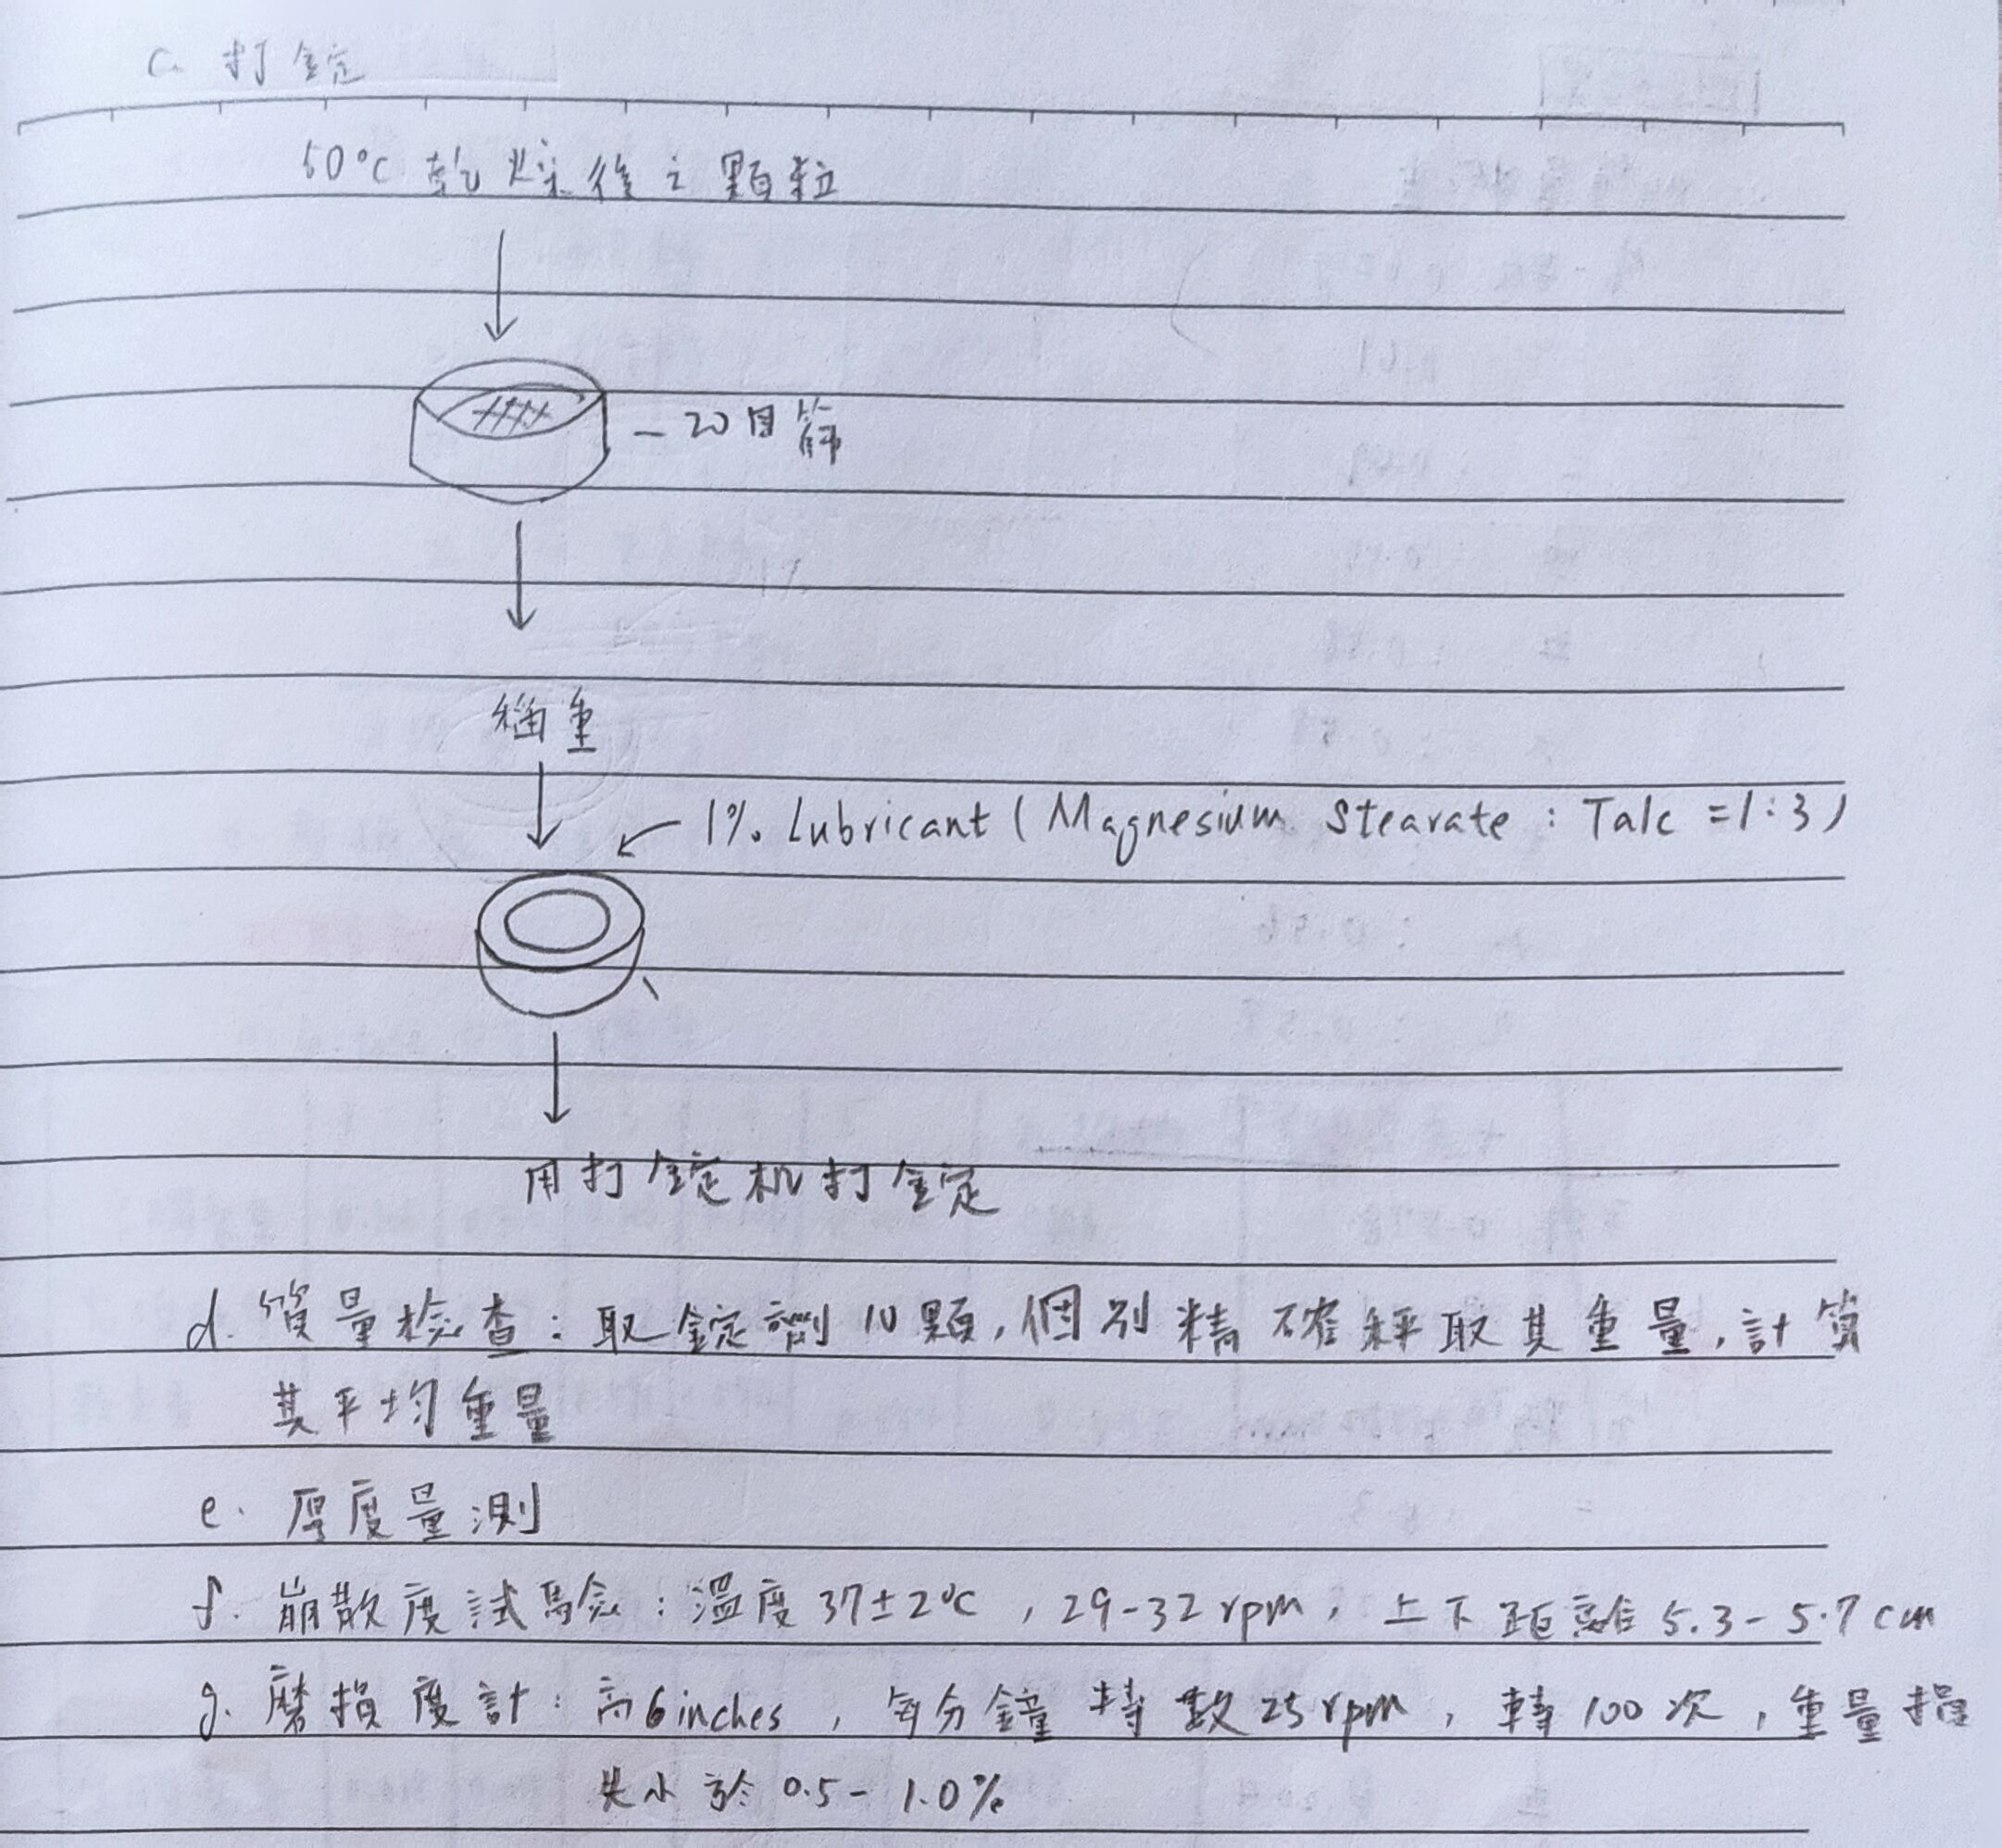 c. 打錠
50°C 乾燥後之顆粒
20目篩
稱重
1% Lubricant (Magnesium Stearate : Talc = 1:3)
用打錠机打錠
d. 質量檢查:取錠劑10顆,個別精確秤取其重量,計算
其平均重量
e. 厚度量測
f. 崩散度試驗:溫度37±2°C,29-32rpm,上下距離5.3-5.7cm
g. 磨損度計:高6inches,每分鐘轉數25rpm,轉100次,重量損
失小於0.5-1.0%